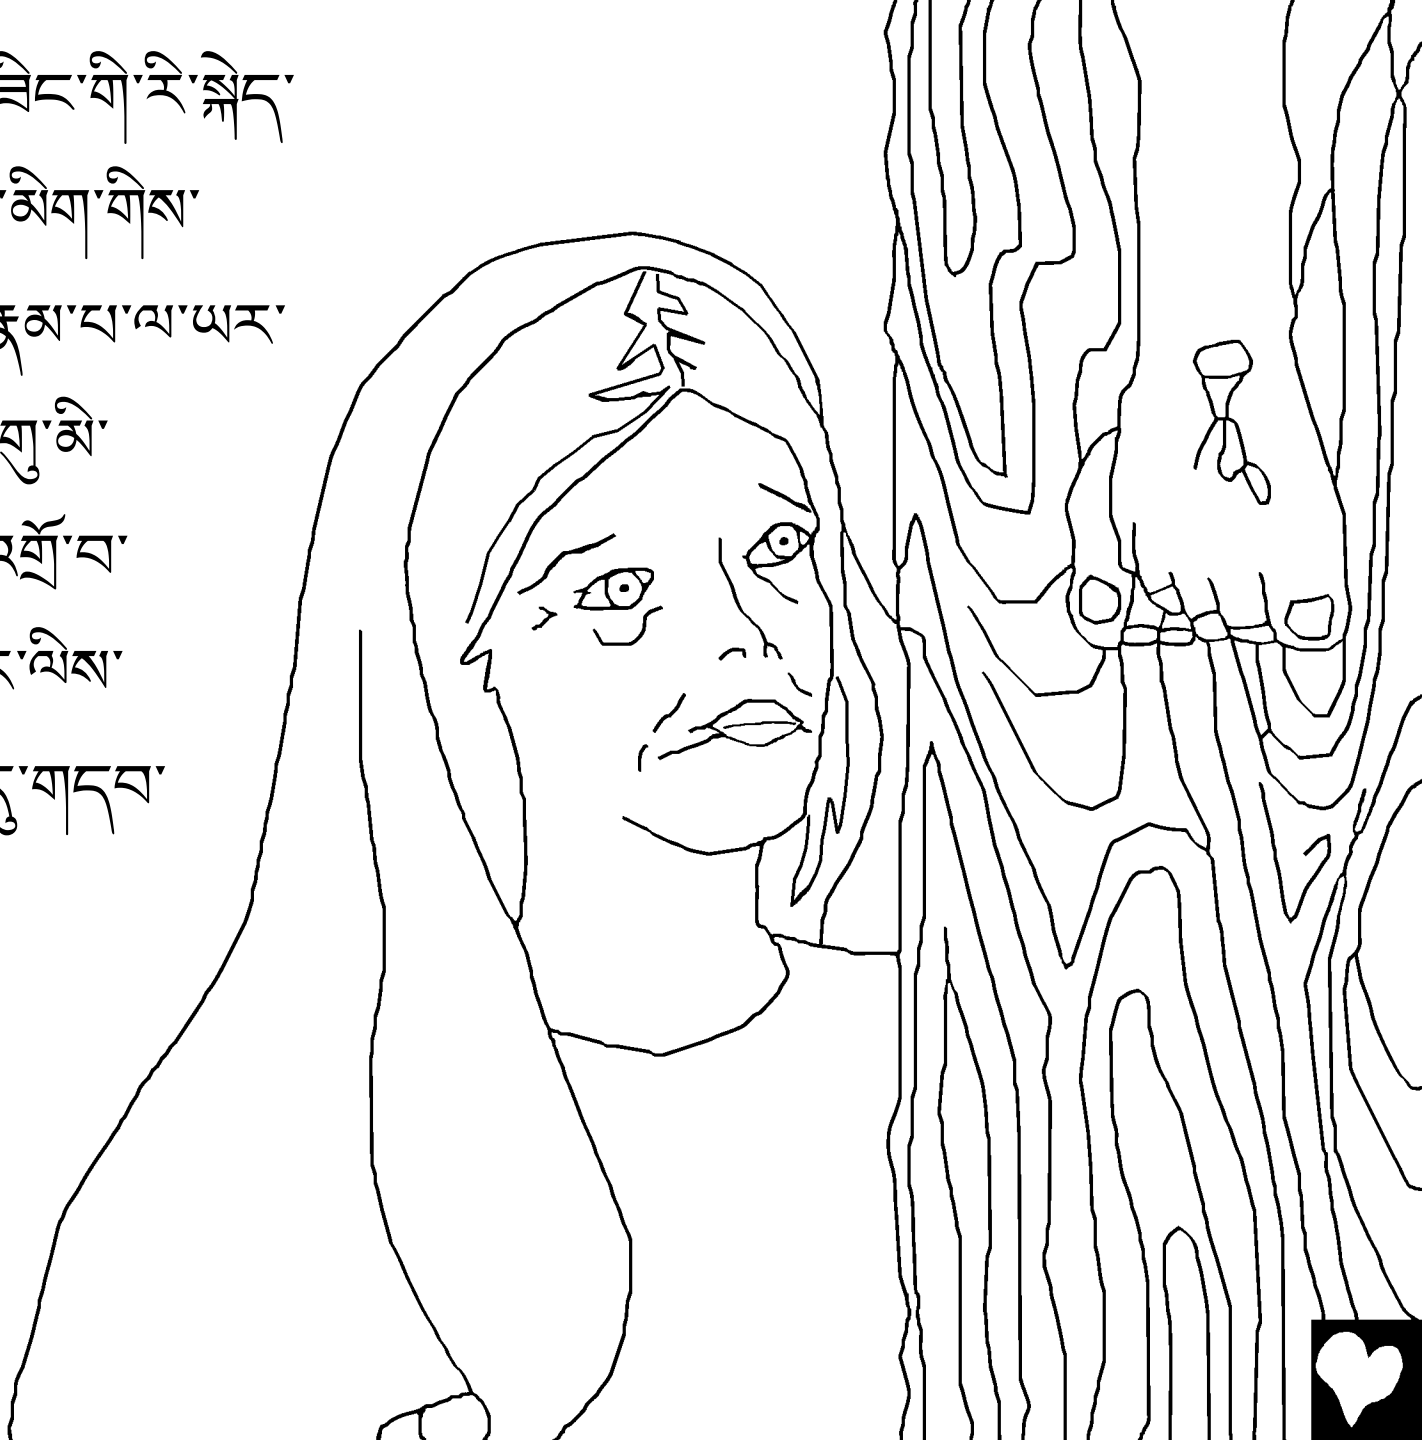 ཟིང་གི་རི་སྐེད་
མིག་གིས་
རྣམ་པ་ལ་ཡར་
གུ་མི་
འགྲོ་བ་
ལིས་
དུ་གདབ་